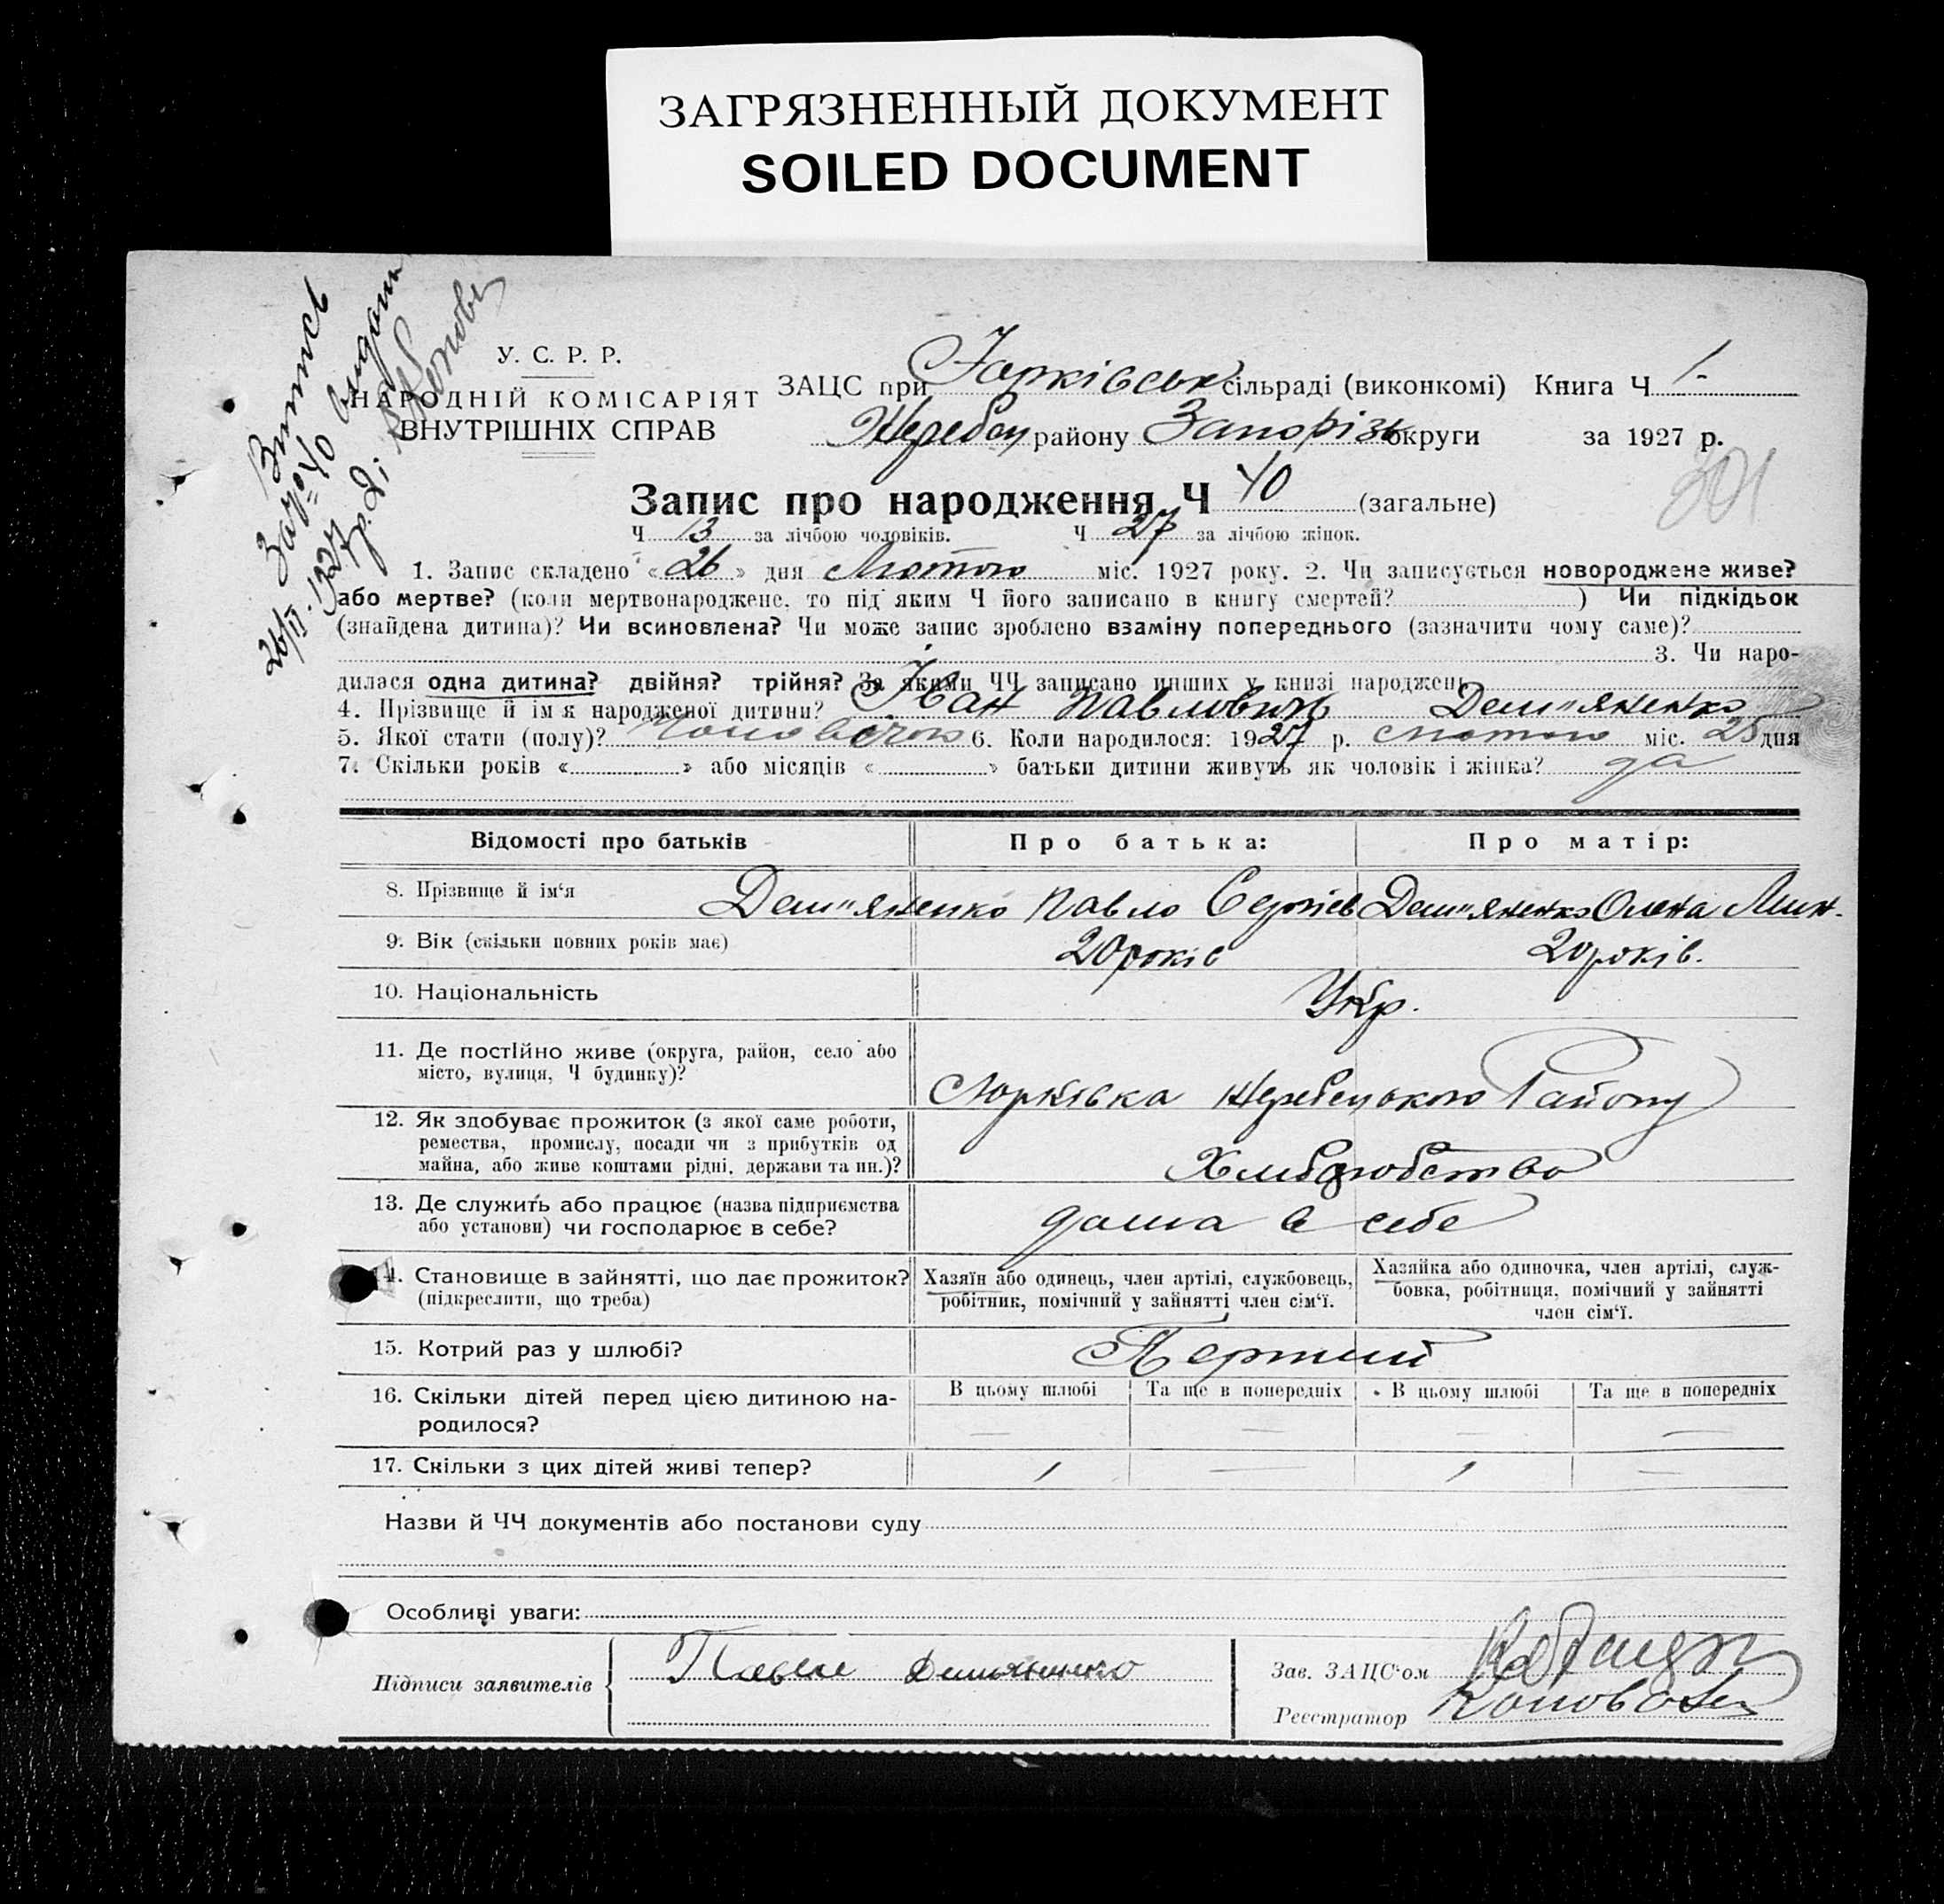 ЗАГРЯЗНЕННЫЙ ДОКУМЕНТ
SOILED DOCUMENT
У. С. Р. Р.
НАРОДНІЙ КОМІСАРІЯТ
ВНУТРІШНІХ СПРАВ
Витись
Зач. 40 видать
26/II. 1927 р.
ЗАЦС при сільраді (виконкомі) Книга Ч 1.
Жеребец району Запорізь округи за 1927 р.
301
Запис про народження Ч 40 (загальне)
Ч 13 за лічбою чоловіків. Ч 27 за лічбою жінок.
1. Запис складено «26» дня Лютого міс. 1927 року. 2. Чи записується новороджене живе?
або мертве? (коли мертвонароджене, то під яким Ч його записано в книгу смертей? ) Чи підкідьок
(знайдена дитина)? Чи всиновлена? Чи може запис зроблено взаміну попереднього (зазначити чому саме)?
3. Чи наро-
дилася одна дитина? двійня? трійня? За якими ЧЧ записано инших у книзі народжень
4. Прізвище й ім'я народженої дитини? Іван Павлович Дем"яненко
5. Якої стати (полу)? Чоловічою 6. Коли народилося: 1927 р. Лютого міс. 25 дня
7. Скільки років « » або місяців « » батьки дитини живуть як чоловік і жінка? да
Відомості про батьків Про батька: Про матір:
8. Прізвище й ім'я Дем"яненко Павло Сергієв Дем"яненко Олена Мин.
9. Вік (скільки повних років має) 20 років 20 років.
10. Національність Укр.
11. Де постІйно живе (округа, район, село або
місто, вулиця, Ч будинку)? Юрківка Жеребецького Району
12. Як здобуває прожиток (з якої саме роботи,
ремества, промислу, посади чи з прибутків од
майна, або живе коштами рідні, держави та ин.)? Хліборобство
13. Де служить або працює (назва підприємства
або установи) чи господарює в себе? дома в себе
14. Становище в зайнятті, що дає прожиток?
(підкреслити, що треба)
Хазяїн або одинець, член артілі, службовець,
робітник, помічний у зайнятті член сім'ї.
Хазяйка або одиночка, член артілі, служ-
бовка, робітниця, помічний у зайнятті
член сім'ї.
15. Котрий раз у шлюбі? Перший
16. Скільки дітей перед цією дитиною на-
родилося?
В цьому шлюбі Та ще в попередніх В цьому шлюбі Та ще в попередніх
— — — —
17. Скільки з цих дітей живі тепер? 1 — 1 —
Назви й ЧЧ документів або постанови суду
Особливі уваги:
Підписи заявителів Павло Демяненко
Зав. ЗАЦС'ом
Реєстратор